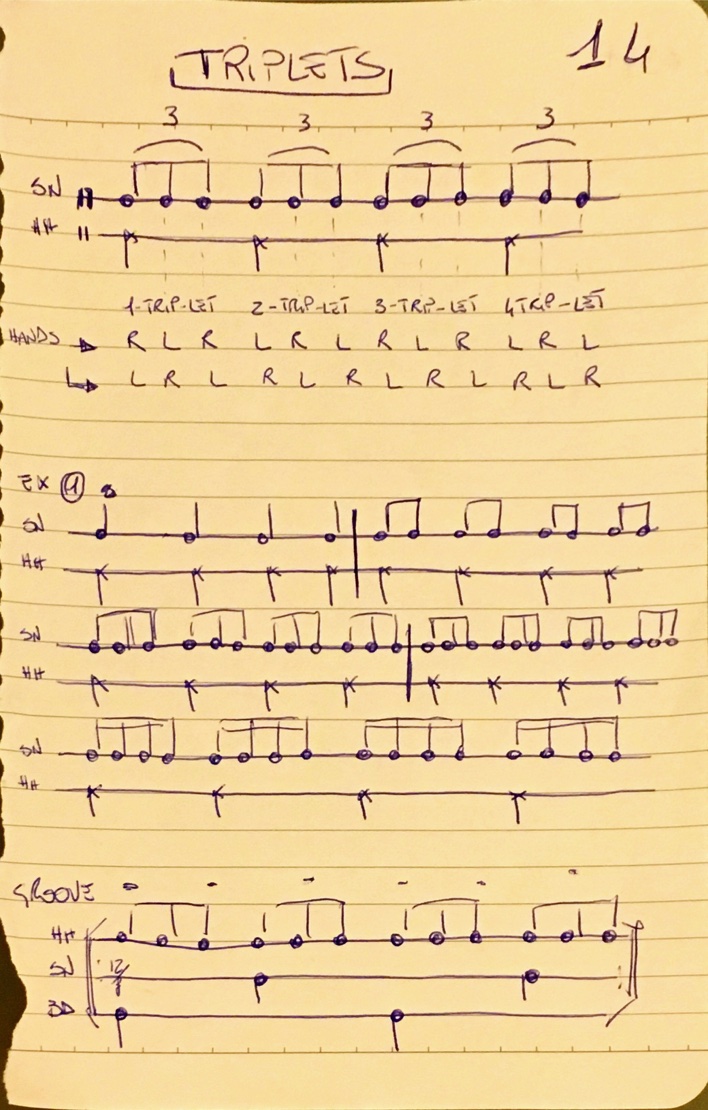 14
TRIPLETS
3 3 3 3
SN
HH
1-TRIP-LET 2-TRIP-LET 3-TRIP-LET 4 TRIP-LET
HANDS R L R L R L R L R L R L
L R L R L R L R L R L R
EX 1
SN
HH
SN
HH
SN
HH
GROOVE
HH
SN 12/8
BD